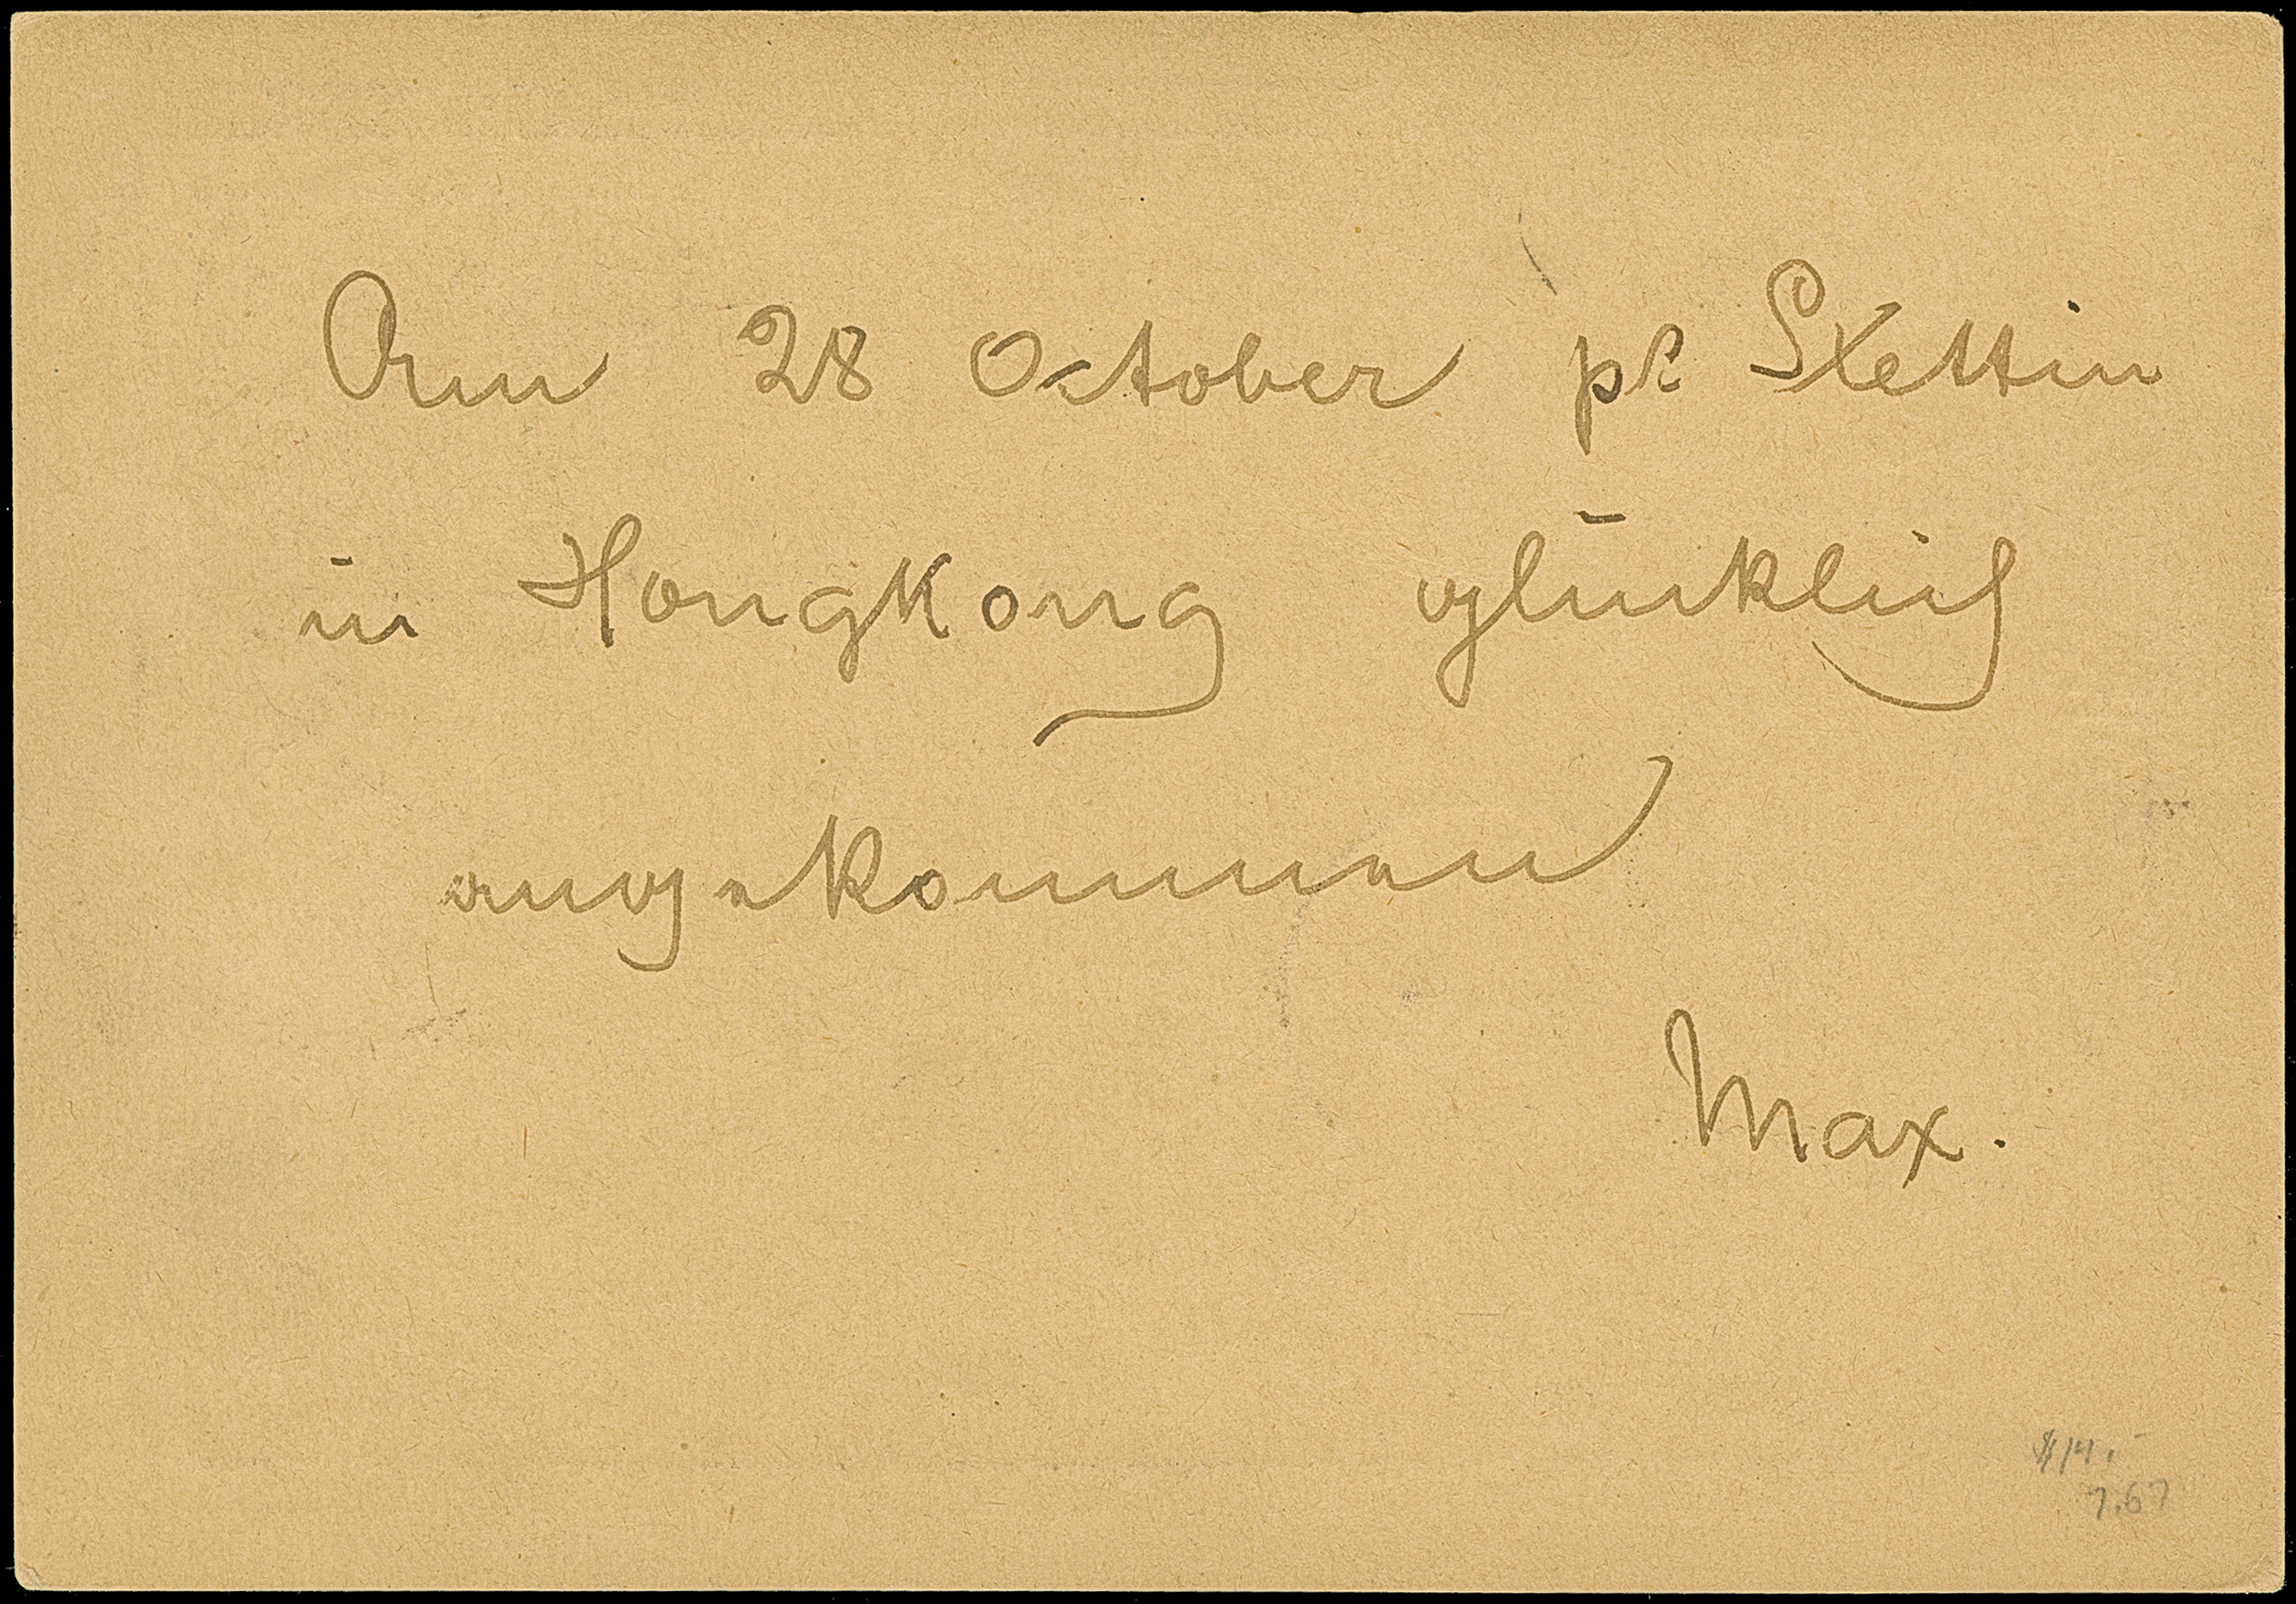 Am 28 October pr Stettin
in HongKong glücklich
angekommen
Max.
$14.-
7.67